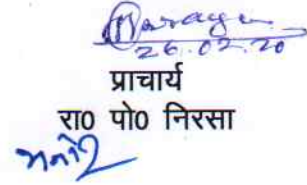 26.02.20
प्राचार्य
रा0 पो0 निरसा